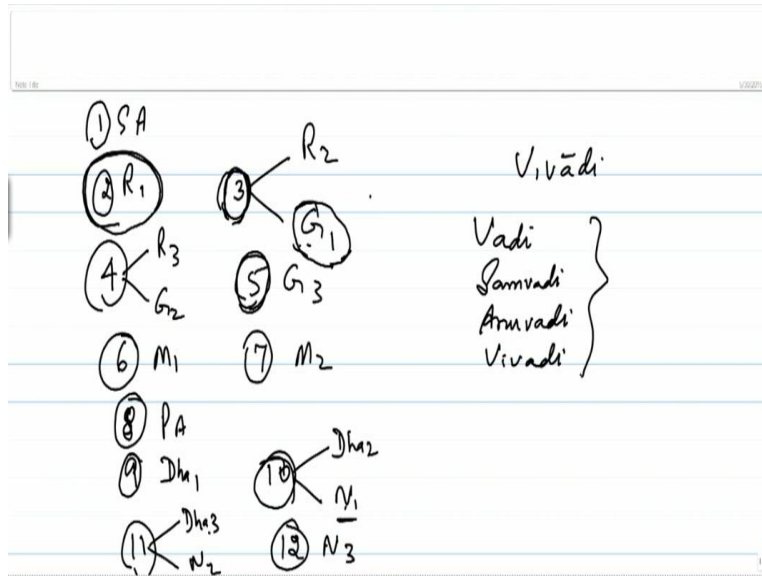 Note Title
1 SA
2 R1
3 R2
G1
4 R3
G2
5 G3
6 M1
7 M2
8 PA
9 Dha1
10 Dha2
N1
11 Dha3
N2
12 N3
Vivādi
Vadi
Samvadi
Anuvadi
Vivadi